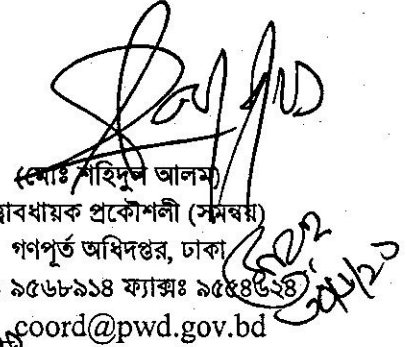 (মোঃ শহিদুল আলম)
াবধায়ক প্রকৌশলী (সমন্বয়)
গণপূর্ত অধিদপ্তর, ঢাকা
৯৫৬৮৯১৪ ফ্যাক্সঃ ৯৫৫৪৬২৪
coord@pwd.gov.bd